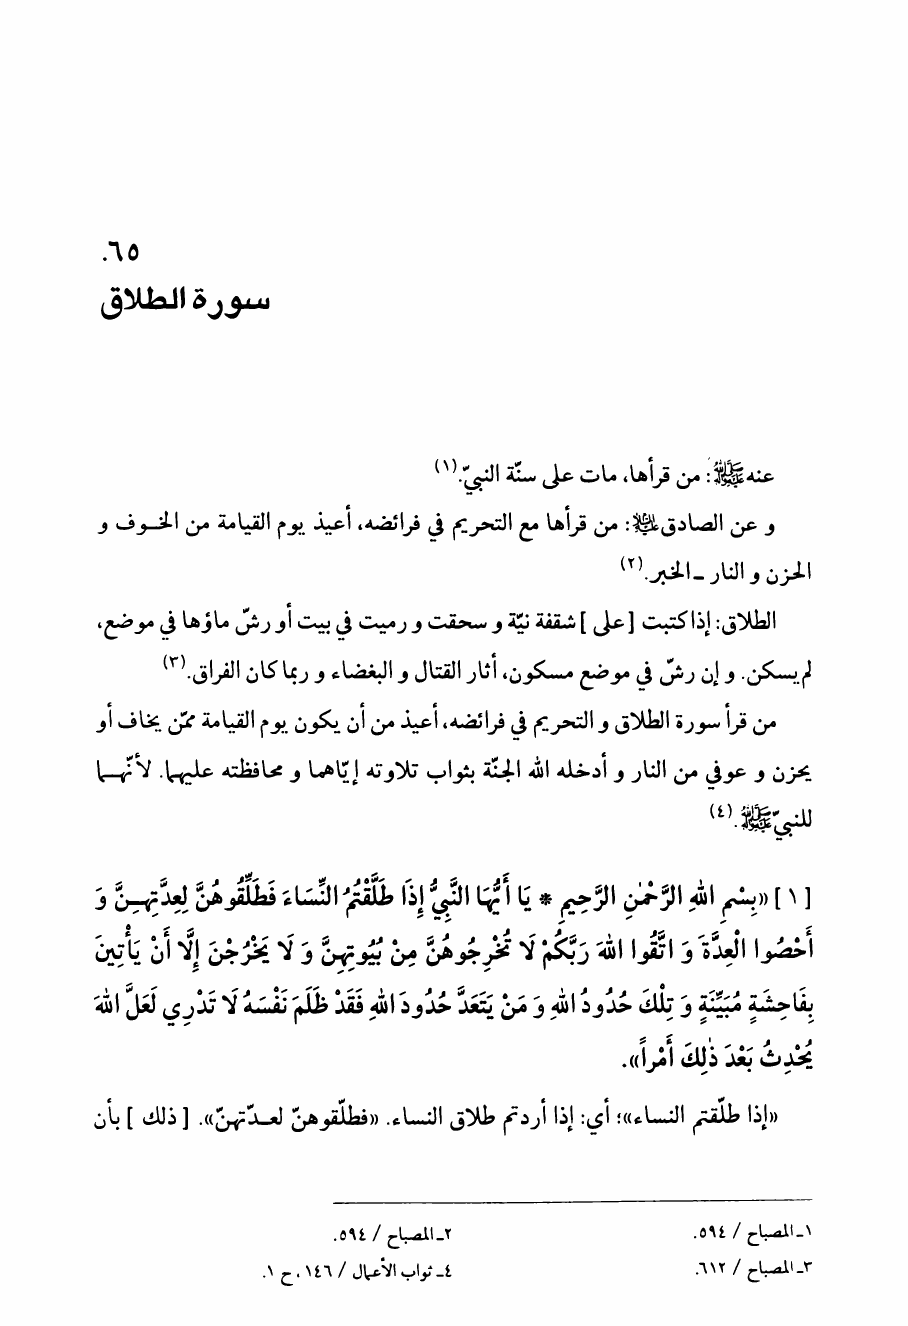 .٦٥
سورة الطلاق
عنه ﷺ: من قرأها، مات على سنّة النبيّ.(١)
و عن الصادق ﵇: من قرأها مع التحريم في فرائضه، أعيذ يوم القيامة من الخوف و
الحزن و النار ـ الخبر.(٢)
الطلاق: إذا كتبت [ على ] شقفة نيّة و سحقت و رميت في بيت أو رشّ ماؤها في موضع،
لم يسكن. و إن رشّ في موضع مسكون، أثار القتال و البغضاء و ربما كان الفراق.(٣)
من قرأ سورة الطلاق و التحريم في فرائضه، أعيذ من أن يكون يوم القيامة ممّن يخاف أو
يحزن و عوفي من النار و أدخله الله الجنّة بثواب تلاوته إيّاهما و محافظته عليهما. لأنّهما
للنبيّ ﷺ.(٤)
[ ١ ] «بِسْمِ اللهِ الرَّحْمٰنِ الرَّحِيمِ * يَا أَيُّهَا النَّبِيُّ إِذَا طَلَّقْتُمُ النِّسَاءَ فَطَلِّقُوهُنَّ لِعِدَّتِهِنَّ وَ
أَحْصُوا الْعِدَّةَ وَ اتَّقُوا اللهَ رَبَّكُمْ لَا تُخْرِجُوهُنَّ مِنْ بُيُوتِهِنَّ وَ لَا يَخْرُجْنَ إِلَّا أَنْ يَأْتِينَ
بِفَاحِشَةٍ مُبَيِّنَةٍ وَ تِلْكَ حُدُودُ اللهِ وَ مَنْ يَتَعَدَّ حُدُودَ اللهِ فَقَدْ ظَلَمَ نَفْسَهُ لَا تَدْرِي لَعَلَّ اللهَ
يُحْدِثُ بَعْدَ ذٰلِكَ أَمْراً».
«إذا طلّقتم النساء»؛ أي: إذا أردتم طلاق النساء. «فطلّقوهنّ لعدّتهنّ». [ ذلك ] بأن
١ـ المصباح / ٥٩٤.
٢ـ المصباح / ٥٩٤.
٣ـ المصباح / ٦١٢.
٤ـ ثواب الأعمال / ١٤٦، ح ١.